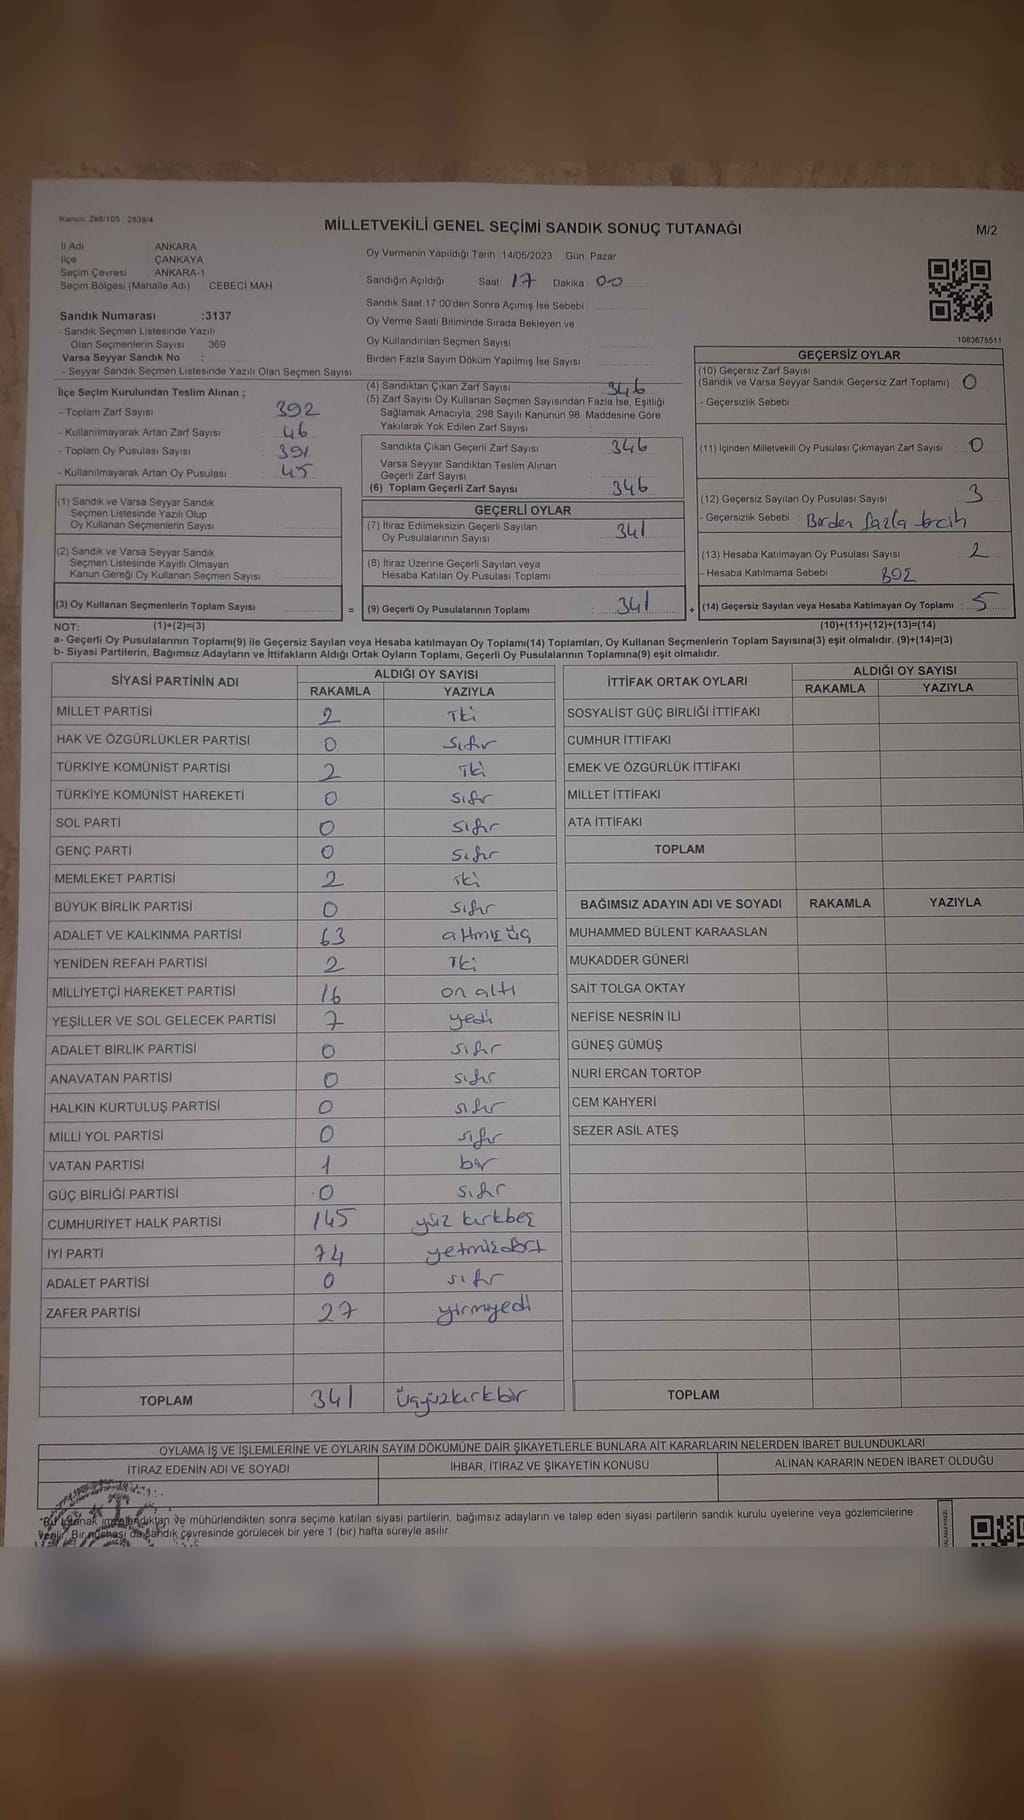 Kanun: 298/105 ; 2839/4
MİLLETVEKİLİ GENEL SEÇİMİ SANDIK SONUÇ TUTANAĞI
M/2
İl Adı : ANKARA
İlçe : ÇANKAYA
Seçim Çevresi : ANKARA-1
Seçim Bölgesi (Mahalle Adı) CEBECİ MAH.
Sandık Numarası :3137
- Sandık Seçmen Listesinde Yazılı
Olan Seçmenlerin Sayısı : 369
Varsa Seyyar Sandık No :
- Seyyar Sandık Seçmen Listesinde Yazılı Olan Seçmen Sayısı :
Oy Vermenin Yapıldığı Tarih :14/05/2023 Gün: Pazar
Sandığın Açıldığı Saat: 17 Dakika: 00
Sandık Saat 17:00'den Sonra Açımış İse Sebebi :
Oy Verme Saati Bitiminde Sırada Bekleyen ve
Oy Kullandırılan Seçmen Sayısı :
Birden Fazla Sayım Döküm Yapılmış İse Sayısı :
1083675511
İlçe Seçim Kurulundan Teslim Alınan ;
- Toplam Zarf Sayısı : 392
- Kullanılmayarak Artan Zarf Sayısı : 46
- Toplam Oy Pusulası Sayısı : 391
- Kullanılmayarak Artan Oy Pusulası : 45
(1) Sandık ve Varsa Seyyar Sandık
Seçmen Listesinde Yazılı Olup
Oy Kullanan Seçmenlerin Sayısı :
(2) Sandık ve Varsa Seyyar Sandık
Seçmen Listesinde Kayıtlı Olmayan
Kanun Gereği Oy Kullanan Seçmen Sayısı :
(3) Oy Kullanan Seçmenlerin Toplam Sayısı :
(4) Sandıktan Çıkan Zarf Sayısı : 346
(5) Zarf Sayısı Oy Kullanan Seçmen Sayısından Fazla İse, Eşitliği
Sağlamak Amacıyla; 298 Sayılı Kanunun 98. Maddesine Göre
Yakılarak Yok Edilen Zarf Sayısı :
Sandıkta Çıkan Geçerli Zarf Sayısı : 346
Varsa Seyyar Sandıktan Teslim Alınan
Geçerli Zarf Sayısı :
(6) Toplam Geçerli Zarf Sayısı : 346
GEÇERLİ OYLAR
(7) İtiraz Edilmeksizin Geçerli Sayılan
Oy Pusulalarının Sayısı : 341
(8) İtiraz Üzerine Geçerli Sayılan veya
Hesaba Katılan Oy Pusulası Toplamı :
= (9) Geçerli Oy Pusulalarının Toplamı : 341
GEÇERSİZ OYLAR
(10) Geçersiz Zarf Sayısı
(Sandık ve Varsa Seyyar Sandık Geçersiz Zarf Toplamı) : 0
- Geçersizlik Sebebi :
(11) İçinden Milletvekili Oy Pusulası Çıkmayan Zarf Sayısı : 0
(12) Geçersiz Sayılan Oy Pusulası Sayısı : 3
- Geçersizlik Sebebi : Birden fazla tercih
(13) Hesaba Katılmayan Oy Pusulası Sayısı : 2
- Hesaba Katılmama Sebebi :
+ (14) Geçersiz Sayılan veya Hesaba Katılmayan Oy Toplamı : 5
NOT: (1)+(2)=(3)
(10)+(11)+(12)+(13)=(14)
a- Geçerli Oy Pusulalarının Toplamı(9) ile Geçersiz Sayılan veya Hesaba katılmayan Oy Toplamı(14) Toplamları, Oy Kullanan Seçmenlerin Toplam Sayısına(3) eşit olmalıdır. (9)+(14)=(3)
b- Siyasi Partilerin, Bağımsız Adayların ve İttifakların Aldığı Ortak Oyların Toplamı, Geçerli Oy Pusulalarının Toplamına(9) eşit olmalıdır.
SİYASİ PARTİNİN ADI ALDIĞI OY SAYISI
RAKAMLA YAZIYLA
MİLLET PARTİSİ 2 iki
HAK VE ÖZGÜRLÜKLER PARTİSİ 0 sıfır
TÜRKİYE KOMÜNİST PARTİSİ 2 iki
TÜRKİYE KOMÜNİST HAREKETİ 0 sıfır
SOL PARTİ 0 sıfır
GENÇ PARTİ 0 sıfır
MEMLEKET PARTİSİ 2 iki
BÜYÜK BİRLİK PARTİSİ 0 sıfır
ADALET VE KALKINMA PARTİSİ 63 altmış üç
YENİDEN REFAH PARTİSİ 2 iki
MİLLİYETÇİ HAREKET PARTİSİ 16 on altı
YEŞİLLER VE SOL GELECEK PARTİSİ 7 yedi
ADALET BİRLİK PARTİSİ 0 sıfır
ANAVATAN PARTİSİ 0 sıfır
HALKIN KURTULUŞ PARTİSİ 0 sıfır
MİLLİ YOL PARTİSİ 0 sıfır
VATAN PARTİSİ 1 bir
GÜÇ BİRLİĞİ PARTİSİ 0 sıfır
CUMHURİYET HALK PARTİSİ 145 yüz kırkbeş
İYİ PARTİ 74 yetmişdört
ADALET PARTİSİ 0 sıfır
ZAFER PARTİSİ 27 yirmiyedi
TOPLAM 341 üçyüzkırkbir
İTTİFAK ORTAK OYLARI ALDIĞI OY SAYISI
RAKAMLA YAZIYLA
SOSYALİST GÜÇ BİRLİĞİ İTTİFAKI
CUMHUR İTTİFAKI
EMEK VE ÖZGÜRLÜK İTTİFAKI
MİLLET İTTİFAKI
ATA İTTİFAKI
TOPLAM
BAĞIMSIZ ADAYIN ADI VE SOYADI RAKAMLA YAZIYLA
MUHAMMED BÜLENT KARAASLAN
MUKADDER GÜNERİ
SAİT TOLGA OKTAY
NEFİSE NESRİN İLİ
GÜNEŞ GÜMÜŞ
NURİ ERCAN TORTOP
CEM KAHYERİ
SEZER ASİL ATEŞ
TOPLAM
OYLAMA İŞ VE İŞLEMLERİNE VE OYLARIN SAYIM DÖKÜMÜNE DAİR ŞİKAYETLERLE BUNLARA AİT KARARLARIN NELERDEN İBARET BULUNDUKLARI
İTİRAZ EDENİN ADI VE SOYADI İHBAR, İTİRAZ VE ŞİKAYETİN KONUSU ALINAN KARARIN NEDEN İBARET OLDUĞU
*Bu tutanak imzalandıktan ve mühürlendikten sonra seçime katılan siyasi partilerin, bağımsız adayların ve talep eden siyasi partilerin sandık kurulu üyelerine veya gözlemcilerine
verilir. Bir nüshası da sandık çevresinde görülecek bir yere 1 (bir) hafta süreyle asılır.